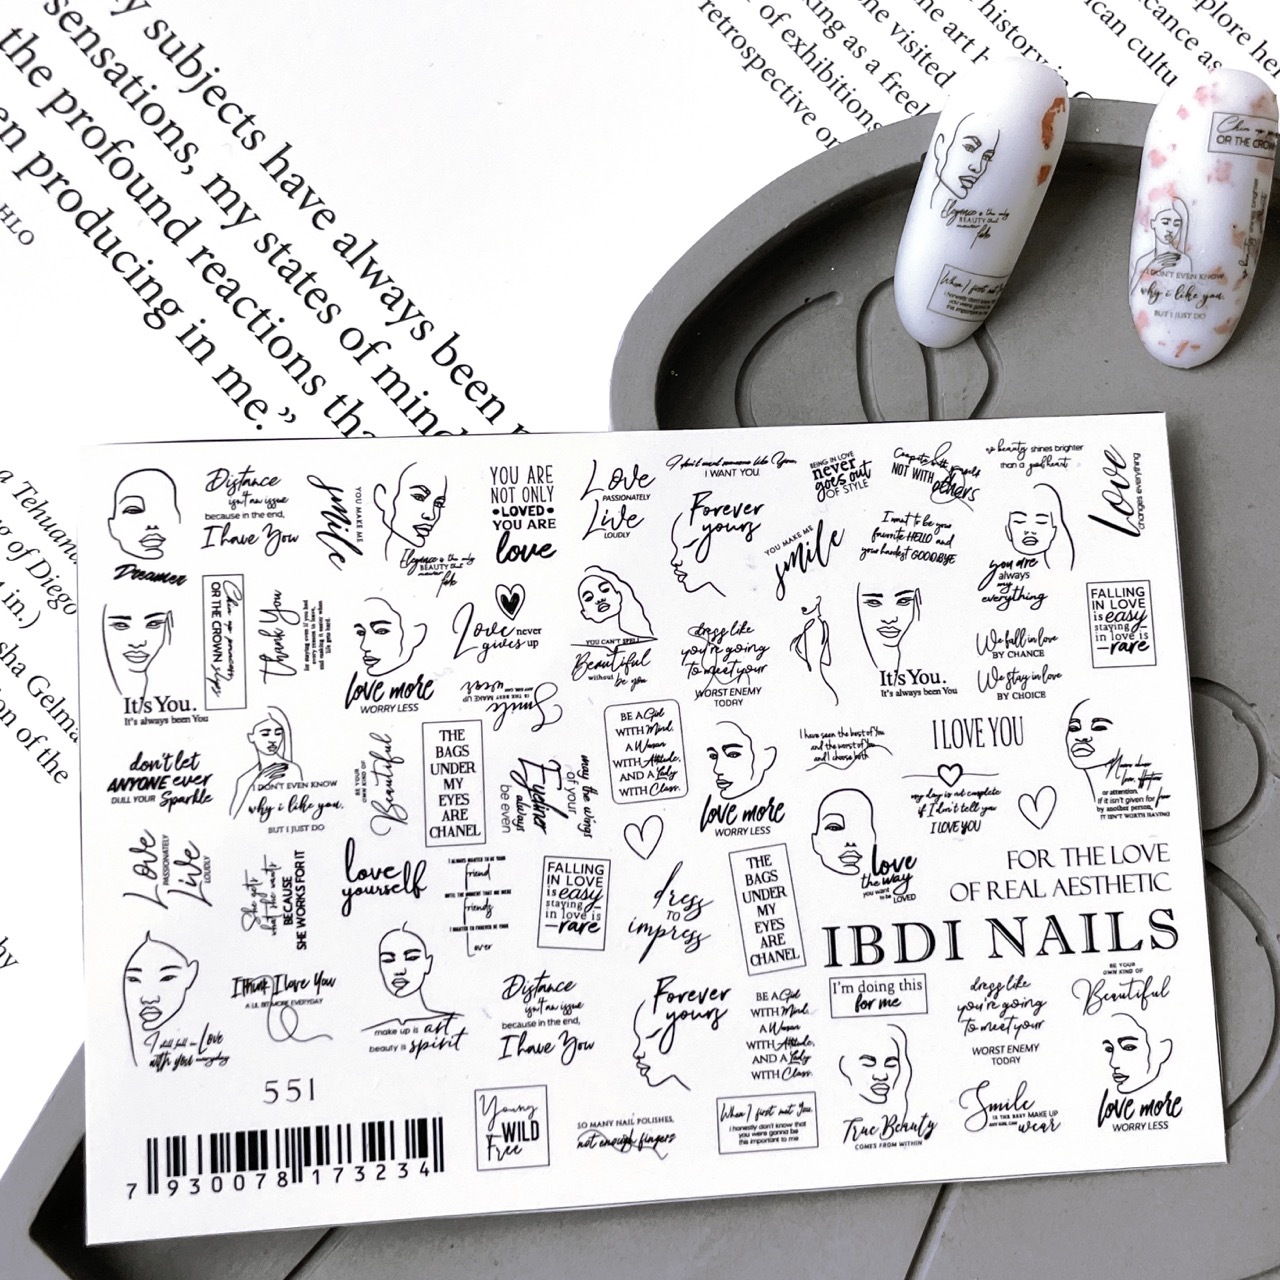 y subjects have always been
sensations, my states of mind
the profound reactions tha
en producing in me.”
HLO
a Tehuana
of Diego
4 in.)
sha Gelma
on of the
by
king as a freel
of exhibitions
retrospective on
one visited
the art h
history
ican cultu
icance as
plore her
Elegance is the only
BEAUTY that
never
fade
When I first met You
i honestly don't know that
you were gonna be
this important to me
Chin up princess
OR THE CROWN
I DON'T EVEN KNOW
why i like you.
BUT I JUST DO
Dreamer
Distance
isn't an issue
because in the end,
I have You
YOU MAKE ME
smile
Elegance is the only
BEAUTY that
never
fade
YOU ARE
NOT ONLY
•LOVED•
YOU ARE
love
Love
PASSIONATELY
Live
LOUDLY
I don't need someone like You,
I WANT YOU.
Forever
yours
BEING IN LOVE
never
goes out
OF STYLE
YOU MAKE ME
smile
NOT WITH others
I want to be your
favorite HELLO and
your hardest GOODBYE
beauty shines brighter
than a good heart
you are
always
my
everything
Love
changes everything
It's You.
It's always been You
Chin up princess,
OR THE CROWN slips
Thank You
love more
WORRY LESS
Love never
gives up
YOU CAN'T SPELL
Beautiful
without be you
Smile
IS THE BEST MAKE UP
ANY GIRL CAN
wear
dress like
you're going
to meet your
WORST ENEMY
TODAY
It's You.
It's always been You
We fall in love
BY CHANCE
We stay in love
BY CHOICE
FALLING
IN LOVE
is easy
staying
in love is
—rare
don't let
ANYONE ever
DULL YOUR Sparkle
I DON'T EVEN KNOW
why i like you.
BUT I JUST DO
BE YOUR
OWN KIND OF
Beautiful
THE
BAGS
UNDER
MY
EYES
ARE
CHANEL
may the wings
of your
Eyeliner
always
be even
BE A Girl
WITH Mind,
A Woman
WITH Attitude,
AND A Lady
WITH Class.
love more
WORRY LESS
I have seen the best of You
and the worst of You
and I choose both
I LOVE YOU
my day is not complete
if I don't tell you
I LOVE YOU
or attention.
If it isn't given for free
by another person,
IT ISN'T WORTH HAVING
Love
PASSIONATELY
Live
LOUDLY
She gets
what she wants
BECAUSE
SHE WORKS FOR IT
love
yourself
I ALWAYS WANTED TO BE YOUR
friend
UNTIL THE MOMENT THAT WE WERE
friends
I WANTED TO FOREVER BE YOUR
lover
FALLING
IN LOVE
is easy
staying
in love is
—rare
dress
TO
impress
THE
BAGS
UNDER
MY
EYES
ARE
CHANEL
love
the way
you want
to be LOVED
FOR THE LOVE
OF REAL AESTHETIC
IBDI NAILS
I still fall in Love
with you everyday
I think I love You
A LIL BIT MORE EVERYDAY
make up is art
beauty is spirit
Distance
isn't an issue
because in the end,
I have You
Forever
yours
BE A Girl
WITH Mind,
A Woman
WITH Attitude,
AND A Lady
WITH Class.
I'm doing this
for me
dress like
you're going
to meet your
WORST ENEMY
TODAY
BE YOUR
OWN KIND OF
Beautiful
551
7 930078 173234
Young
WILD
Free
SO MANY NAIL POLISHES,
not enough fingers
When I first met You,
i honestly don't know that
you were gonna be
this important to me
True Beauty
COMES FROM WITHIN
Smile
IS THE BEST MAKE UP
ANY GIRL CAN
wear
love more
WORRY LESS